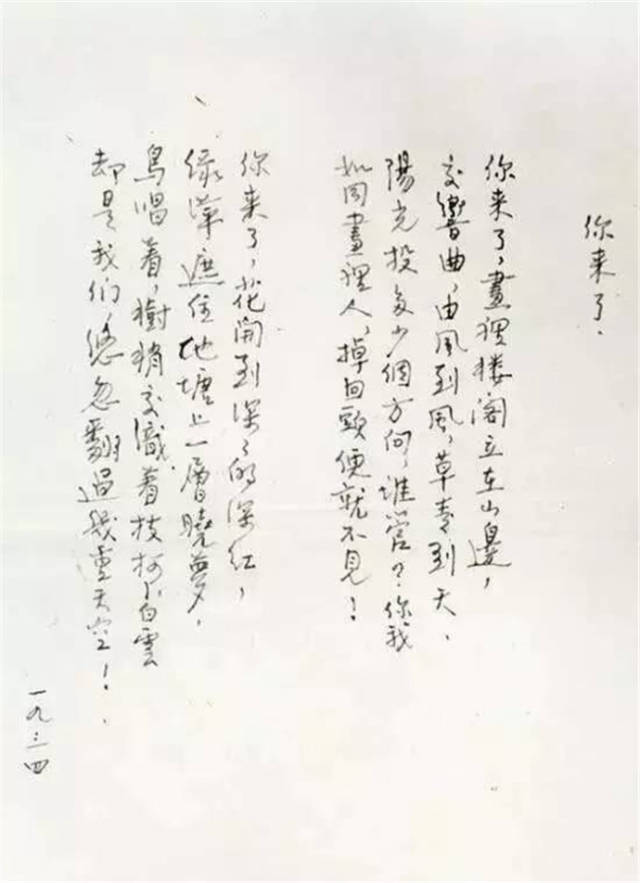 你来了.
你来了,畫裡楼阁立在山邊,
交響曲,由風到風,草青到天.
陽光投多少個方向,谁管?你我
如同畫裡人,掉回頭便就不見!
你来了,花開到深深的深红,
绿萍遮住池塘上一層曉夢,
鳥唱着,樹梢交織着枝柯,白雲
却是我们,悠忽翻過幾重天空!
一九三四